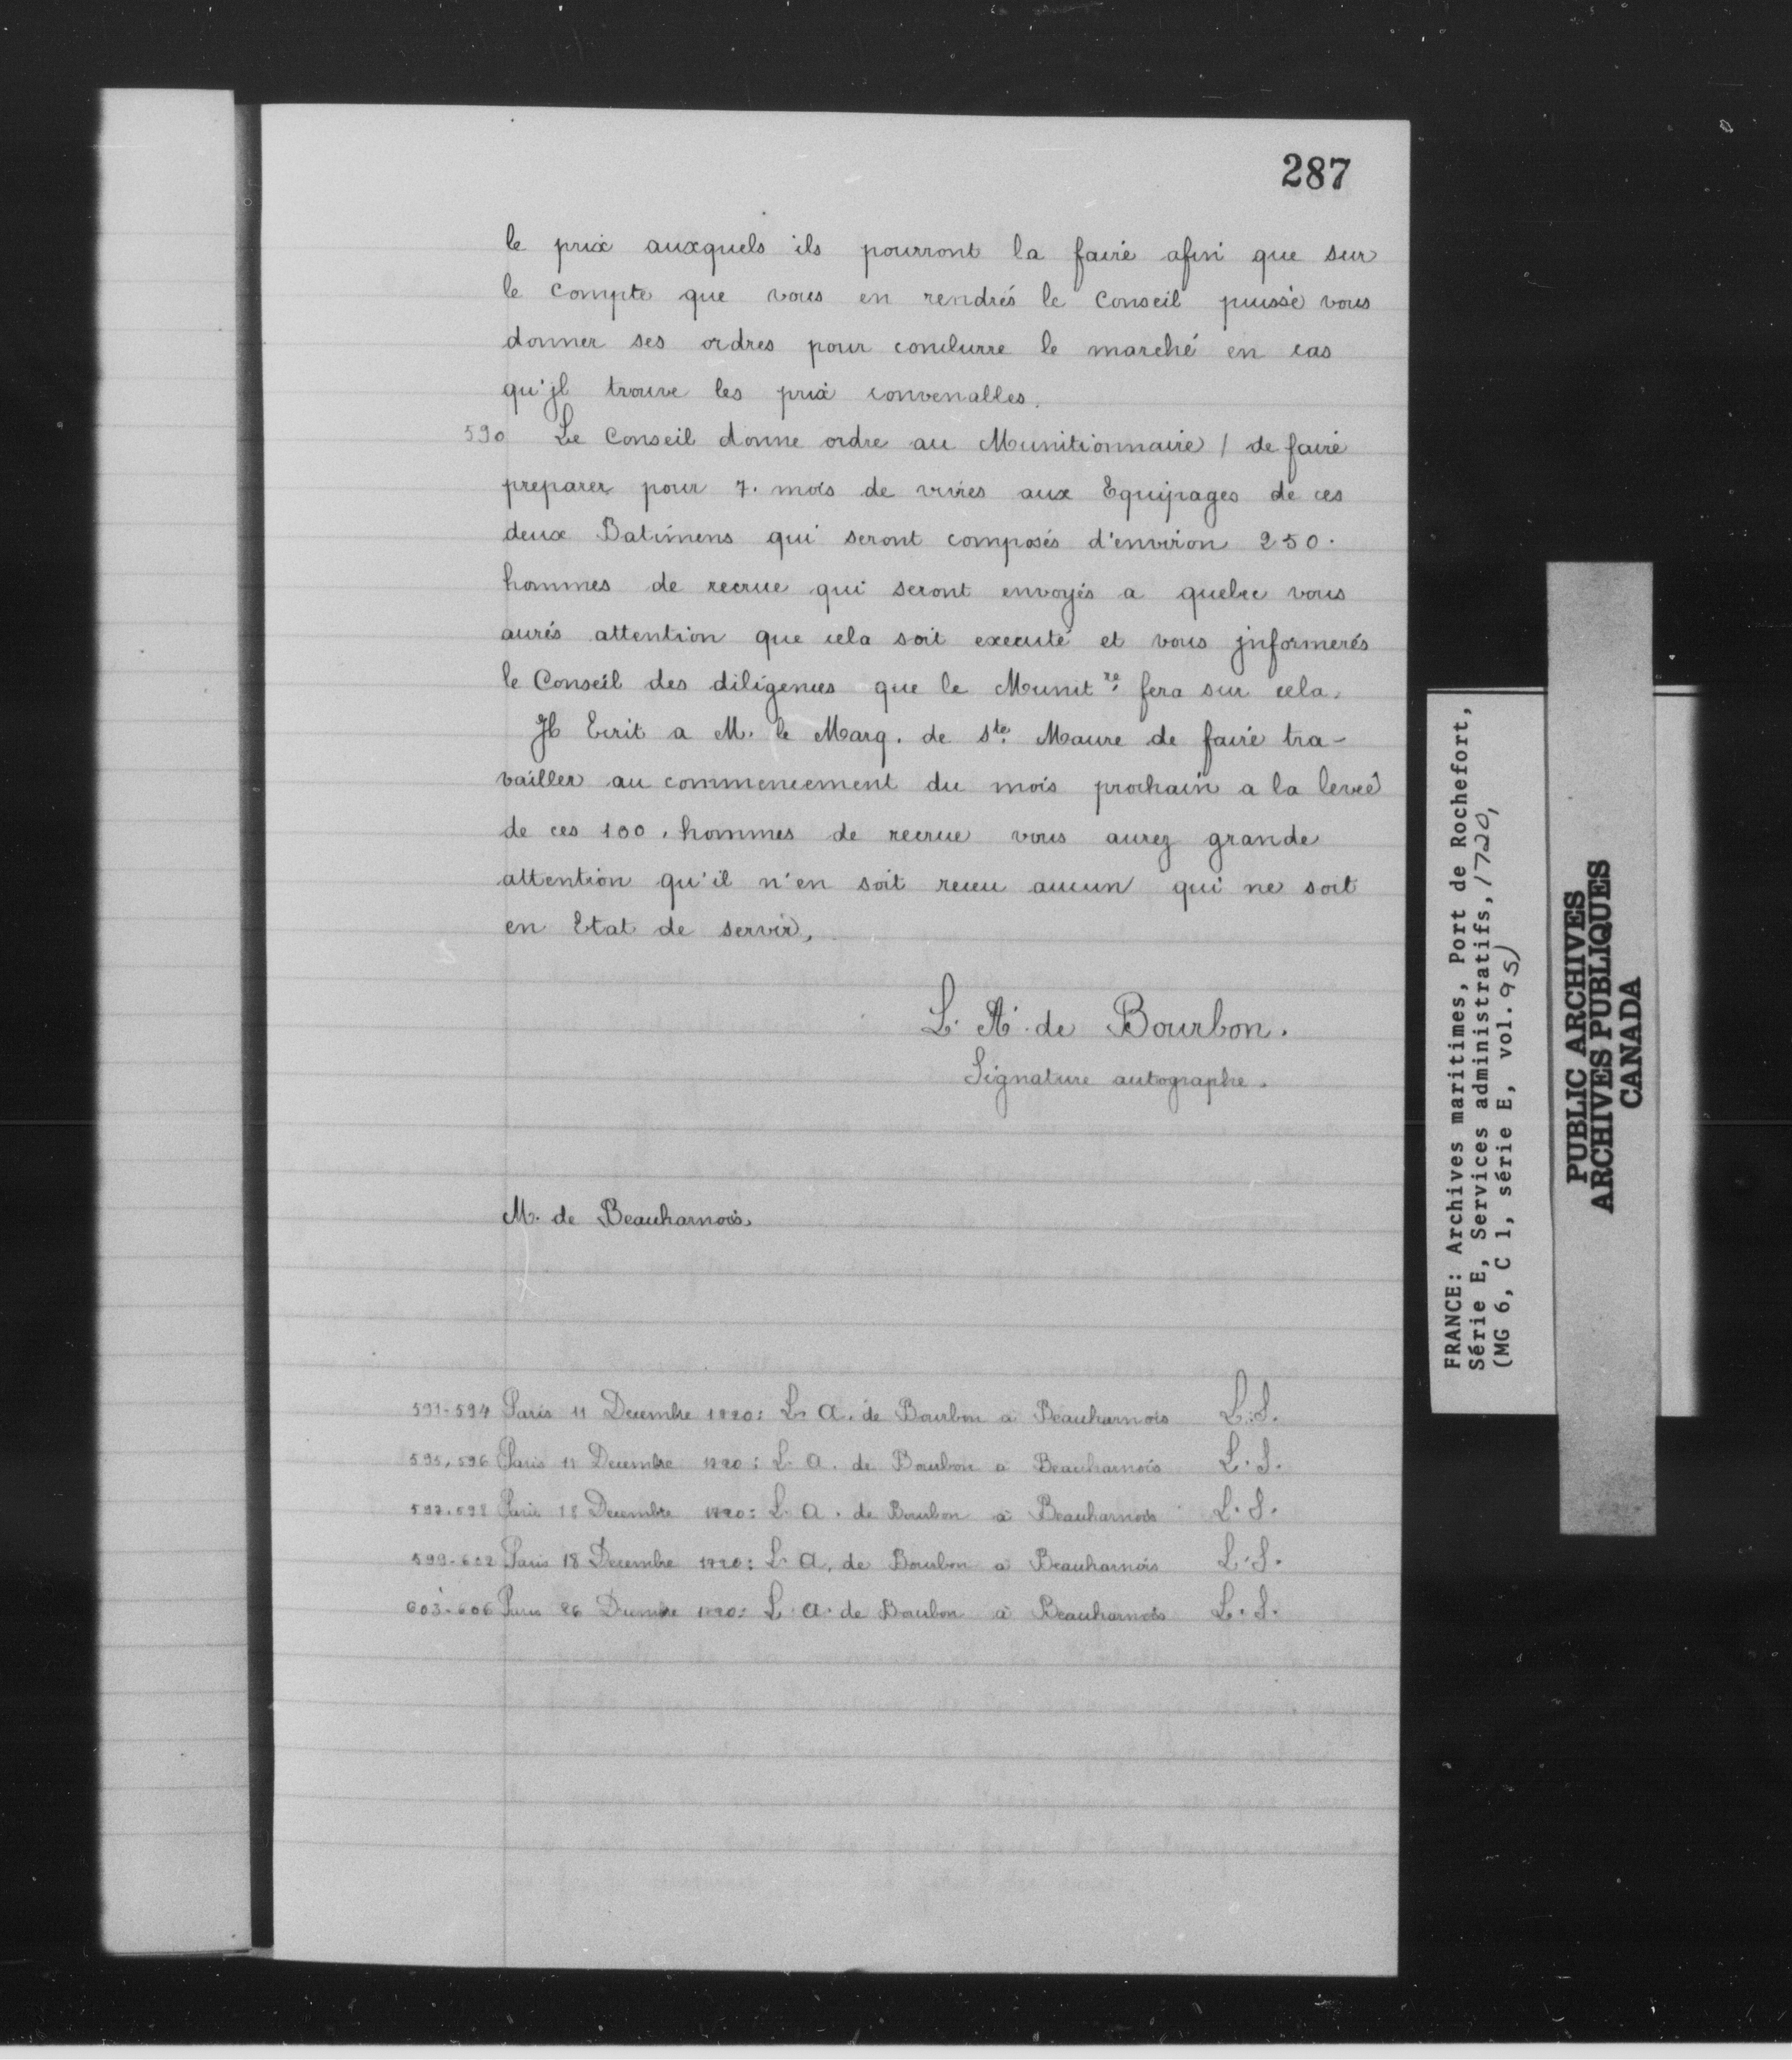 287
le prix auxquels ils pourront la faire afin que sur
le compte que vous en rendrés le Conseil puisse vous
donner ses ordres pour conclurre le marché en cas
qu'jl trouve les prix convenalles.
590 Le Conseil donne ordre au Munitionnaire / de faire
preparer pour 7. mois de vivres aux Equipages de ces
deux Batimens qui seront composés d'environ 250.
hommes de recrue qui seront envoyés a quebec vous
aurés attention que cela soit executé et vous jnformerés
le Conseil des diligences que le Munit.re fera sur cela.
Jl Ecrit a M. le Marq. de Ste. Maure de faire tra-
vailler au commencement du mois prochain a la levée
de ces 100. hommes de recrue vous aurez grande
attention qu'il n'en soit receu aucun qui ne soit
en Etat de servir,
L. A. de Bourbon.
Signature autographe.
M. de Beauharnois.
591-594 Paris 11 Decembre 1720: L. A. de Bourbon à Beauharnois L.S.
595,596 Paris 11 Decembre 1720: L. A. de Bourbon à Beauharnois L.S.
597.598 Paris 18 Decembre 1720: L. A. de Bourbon à Beauharnois L.S.
599-602 Paris 18 Decembre 1720: L. A. de Bourbon à Beauharnois L.S.
603-606 Paris 26 Decembre 1720: L. A. de Bourbon à Beauharnois L.S.
FRANCE: Archives maritimes, Port de Rochefort,
Série E, Services administratifs, 1720,
(MG 6, C 1, série E, vol. 95)
PUBLIC ARCHIVES
ARCHIVES PUBLIQUES
CANADA